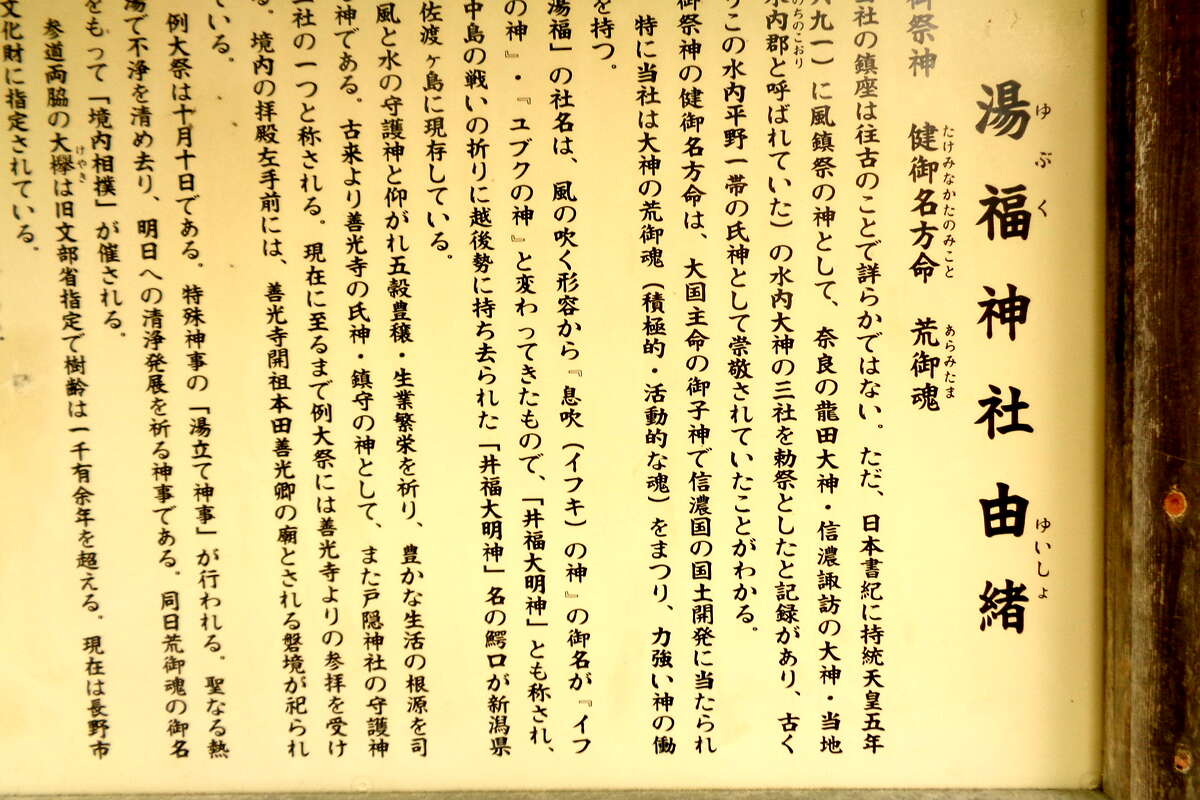 湯福神社由緒
ゆぶく
ゆいしょ
御祭神 健御名方命 荒御魂
たけみなかたのみこと
あらみたま
当社の鎮座は往古のことで詳らかではない。ただ、日本書紀に持統天皇五年
六九一)に風鎮祭の神として、奈良の龍田大神・信濃諏訪の大神・当地
水内郡と呼ばれていた)の水内大神の三社を勅祭としたと記録があり、古く
のちのこおり
りこの水内平野一帯の氏神として崇敬されていたことがわかる。
御祭神の健御名方命は、大国主命の御子神で信濃国の国土開発に当たられ
特に当社は大神の荒御魂(積極的・活動的な魂)をまつり、力強い神の働
を持つ。
湯福」の社名は、風の吹く形容から『息吹(イフキ)の神』の御名が『イフ
の神』・『ユブクの神』と変わってきたもので、「井福大明神」とも称され、
中島の戦いの折りに越後勢に持ち去られた「井福大明神」名の鰐口が新潟県
佐渡ヶ島に現存している。
風と水の守護神と仰がれ五穀豊穣・生業繁栄を祈り、豊かな生活の根源を司
る神である。古来より善光寺の氏神・鎮守の神として、また戸隠神社の守護神
三社の一つと称される。現在に至るまで例大祭には善光寺よりの参拝を受け
る。境内の拝殿左手前には、善光寺開祖本田善光卿の廟とされる磐境が祀られ
ている。
例大祭は十月十日である。特殊神事の「湯立て神事」が行われる。聖なる熱
湯で不浄を清め去り、明日への清浄発展を祈る神事である。同日荒御魂の御名
をもって「境内相撲」が催される。
参道両脇の大欅は旧文部省指定で樹齢は一千有余年を超える。現在は長野市
けやき
文化財に指定されている。